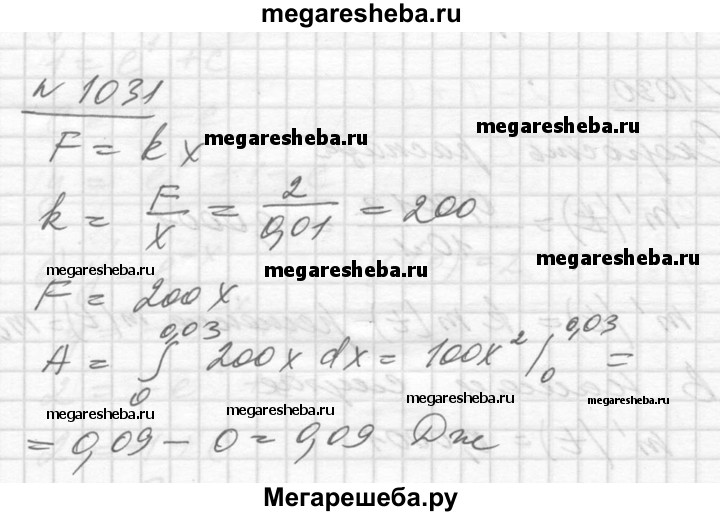 megaresheba.ru
№ 1031
F = kx
megaresheba.ru
megaresheba.ru
k = F/x = 2/0,01 = 200
megaresheba.ru
megaresheba.ru
megaresheba.ru
F = 200x
A = ∫₀^0,03 200x dx = 100x² |₀^0,03 =
megaresheba.ru
megaresheba.ru
megaresheba.ru
megaresheba.ru
= 0,09 – 0 = 0,09 Дж
Мегарешеба.ру